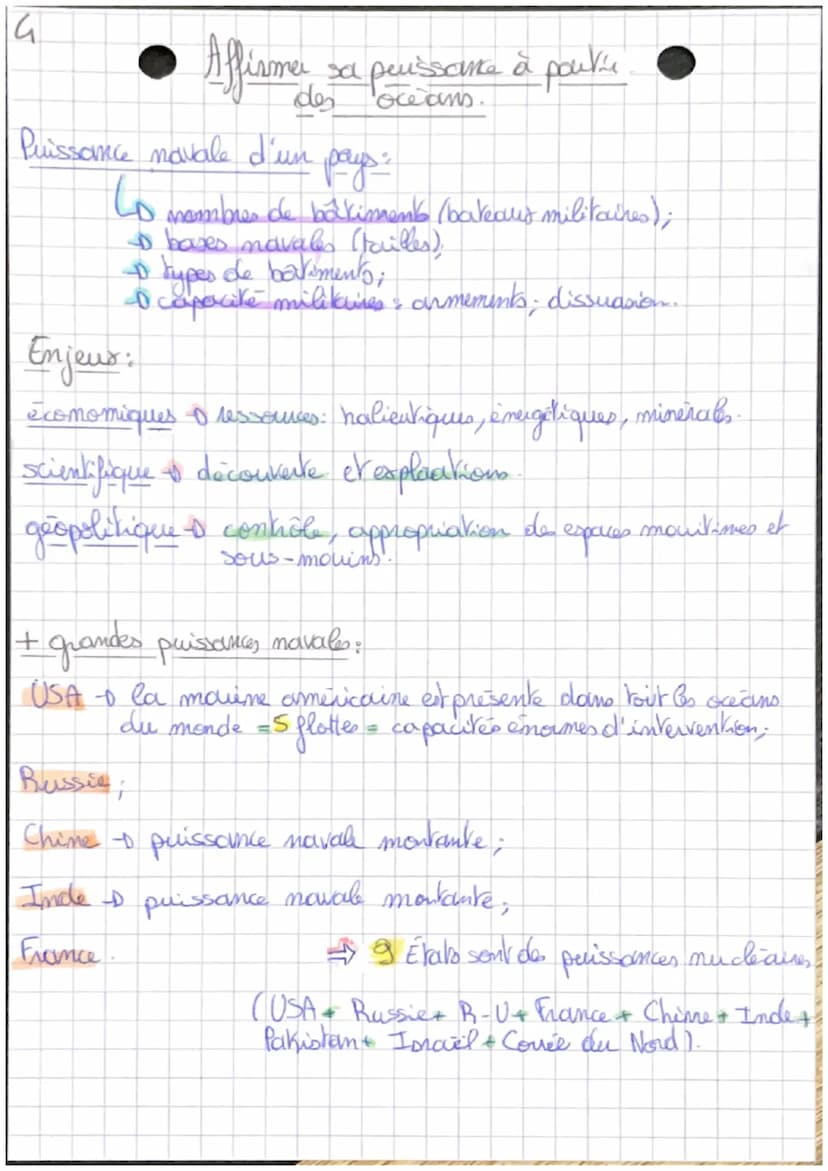 4
Affirmer sa puissance à partir
des océans.
Puissance navale d'un pays:
nombres de bâtiments (bateaux militaires);
bases navales (tailles);
types de bâtiments;
capacité militaires: armements; dissuasion.
Enjeux:
économiques → ressources: halieutiques, énergétiques, minérals.
scientifique → découverte et explorations.
géopolitique → contrôle, appropriation des espaces maritimes et
sous-marins.
+ grandes puissances navales:
USA → la marine américaine est présente dans tout les océans
du monde = 5 flottes = capacités énormes d'intervention;
Russie;
Chine → puissance navale montante;
Inde → puissance navale montante;
France. ⇒ 9 États sont des puissances nucléaires
(USA + Russie + R-U + France + Chine + Inde +
Pakistan + Israël + Corée du Nord).